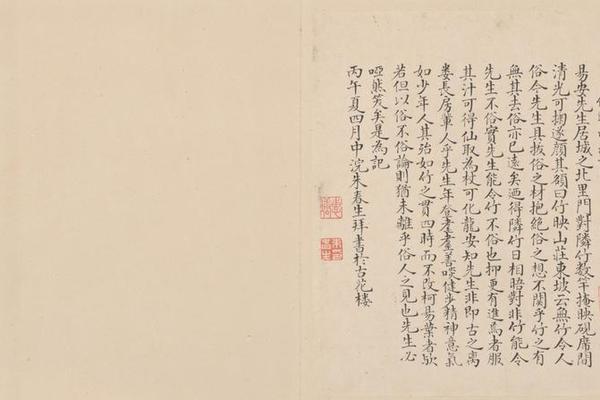 易安先生居城之北里門對隣竹數竿掩映硯席間
清光可掬遂顏其額曰竹映山莊東坡云無竹令人
俗今先生具拔俗之材抱絕俗之想不關乎竹之有
無其去俗亦已遠矣迺得隣竹日相晤對非竹能令
先生不俗實先生能令竹不俗也抑更有進焉者服
其汁可得仙取為杖可化龍安知先生非即古之离
婁長房輩人乎先生年登耄耋善啖健步精神意氣
如少年人其殆如竹之貫四時而不改柯易葉者歟
若但以俗不俗論則猶未離乎俗人之見也先生必
啞然笑矣是為記
丙午夏四月中浣朱春生拜書於古花樓